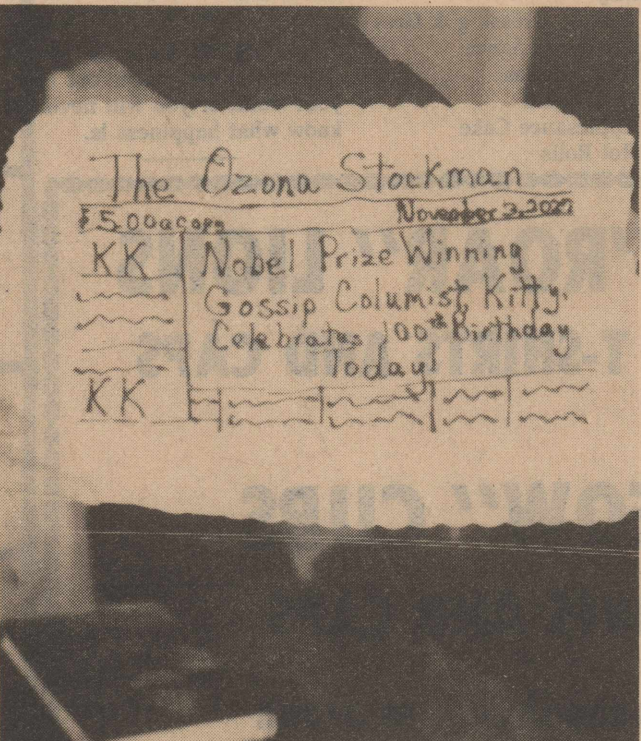 The Ozona Stockman
$5.00 a copy
November 3, 2027
KK
Nobel Prize Winning
Gossip Columist, Kitty.
Celebrates 100th Birthday
Today!
KK
know what happiness is.